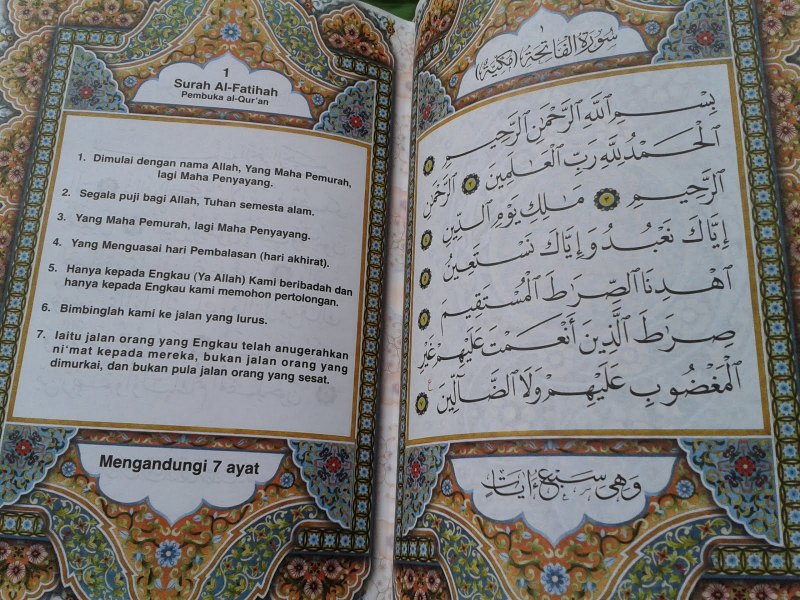 1
Surah Al-Fatihah
Pembuka al-Qur'an
1. Dimulai dengan nama Allah, Yang Maha Pemurah,
lagi Maha Penyayang.
2. Segala puji bagi Allah, Tuhan semesta alam.
3. Yang Maha Pemurah, lagi Maha Penyayang.
4. Yang Menguasai hari Pembalasan (hari akhirat).
5. Hanya kepada Engkau (Ya Allah) Kami beribadah dan
hanya kepada Engkau kami memohon pertolongan.
6. Bimbinglah kami ke jalan yang lurus.
7. Iaitu jalan orang yang Engkau telah anugerahkan
ni'mat kepada mereka, bukan jalan orang yang
dimurkai, dan bukan pula jalan orang yang sesat.
Mengandungi 7 ayat
١
سُورَةُ الْفَاتِحَةِ (مَكِّيَّةٌ)
بِسْمِ اللَّهِ الرَّحْمَٰنِ الرَّحِيمِ ١
الْحَمْدُ لِلَّهِ رَبِّ الْعَالَمِينَ ٢ الرَّحْمَٰنِ
الرَّحِيمِ ٣ مَالِكِ يَوْمِ الدِّينِ ٤
إِيَّاكَ نَعْبُدُ وَإِيَّاكَ نَسْتَعِينُ ٥
اهْدِنَا الصِّرَاطَ الْمُسْتَقِيمَ ٦
صِرَاطَ الَّذِينَ أَنْعَمْتَ عَلَيْهِمْ غَيْرِ
الْمَغْضُوبِ عَلَيْهِمْ وَلَا الضَّالِّينَ ٧
وَهِيَ سَبْعُ ءَايَاتٍ